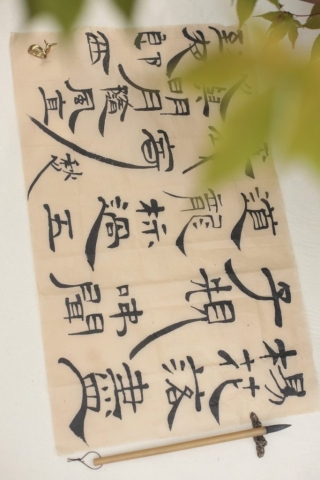 楊花落盡
子規啼聞
道龍標過五
寄愁
與明月隨風直
到夜郎西